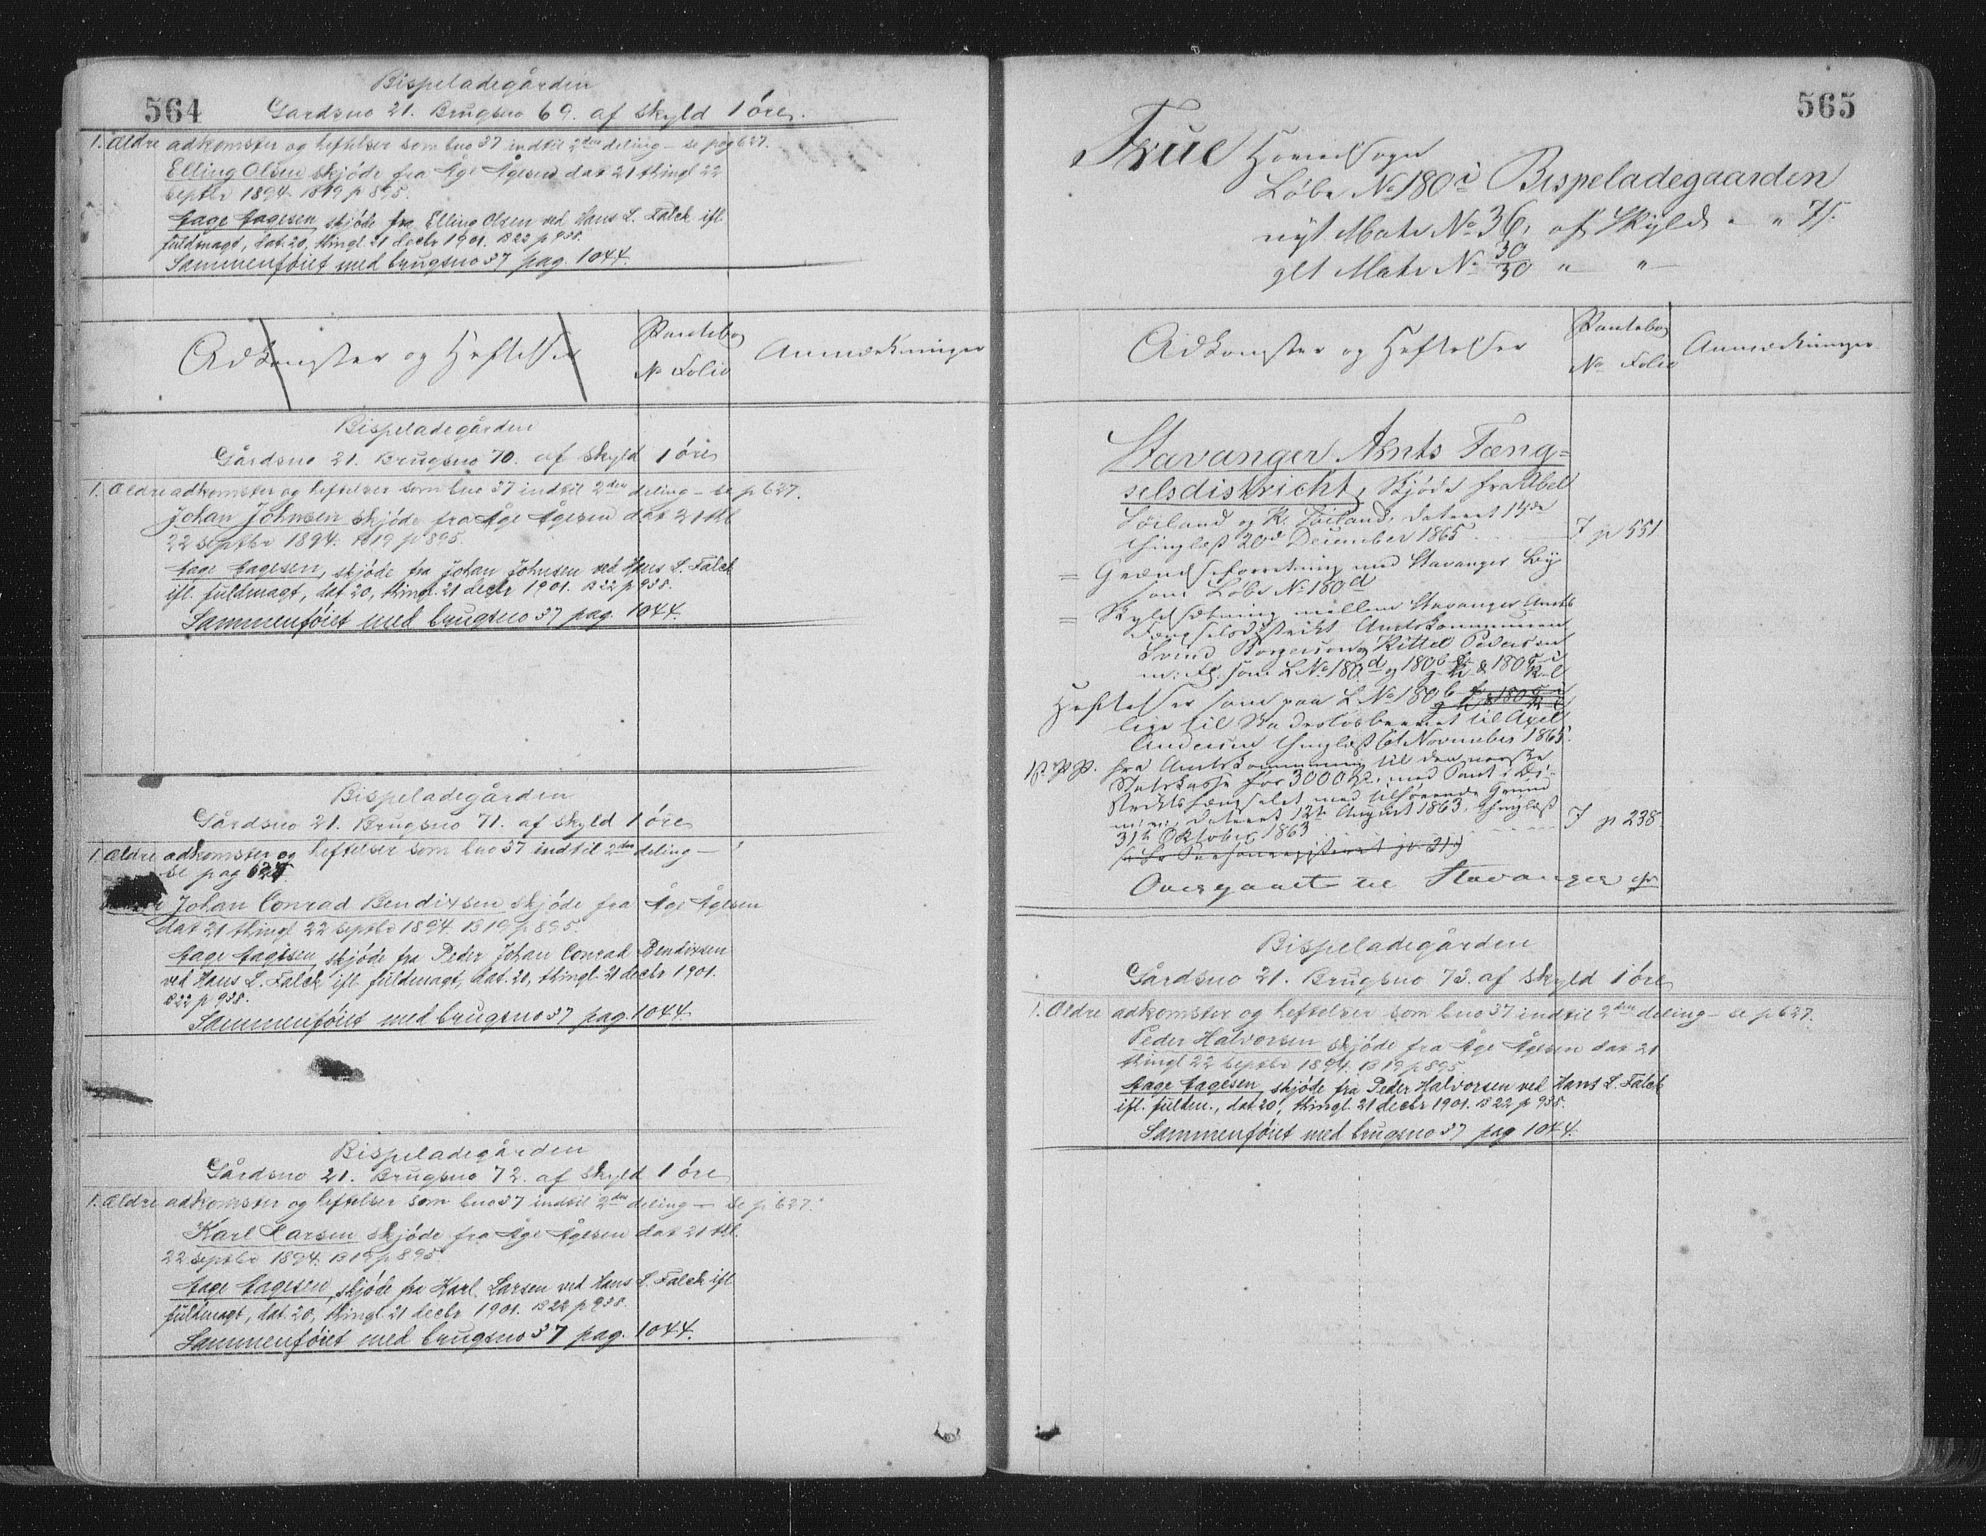 564
Bispeladegården
Gårdsno 21. Brugsno 69. af skyld 1 øre.
1. Ældre adkomster og heftelser som bno 37 indtil 2den deling – se pag 627.
Elling Olsen skjøde fra Åge Ågesen dat 21 thingl 22
septbr 1894. B 19 p 895.
Aage Aagesen, skjøde fra Elling Olsen ved Hans L. Falck ifl.
fuldmagt, dat. 20, thingl 21 decbr 1901. B 22 p 938.
Sammenføiet med brugsno 37 pag. 1044.
Adkomster og Heftelser
Pantebog
No Folio
Anmærkninger
Bispeladegården
Gårdsno 21. Brugsno 70. af skyld 1 øre
1. Ældre adkomster og heftelser som bno 37 indtil 2den deling – se p 627.
Johan Johnsen skjøde fra Åge Ågesen dat 21 thl
22 septbr 1894. B 19 p 895.
Aage Aagesen, skjøde fra Johan Johnsen ved Hans L. Falck
ifl. fuldmagt, dat 20, thingl. 21 decbr 1901. B 22 p 938.
Sammenføiet med brugsno 37 pag. 1044.
Bispeladegården
Gårdsno 21. Brugsno 71. af skyld 1 øre
1. Ældre adkomster og heftelser som bno 37 indtil 2den deling –
se pag 627
Johan Conrad Bendixsen skjøde fra Åge Ågesen
dat 21 thingl 22 septbr 1894. B 19 p 895.
Aage Aagesen, skjøde fra Peder Johan Conrad Bendixsen
ved Hans L. Falck ifl. fuldmagt, dat. 20, thingl. 21 decbr 1901.
B 22 p 938.
Sammenføiet med brugsno 37 pag. 1044.
Bispeladegården
Gårdsno 21. Brugsno 72. af skyld 1 øre
1. Ældre adkomster og heftelser som bno 37 indtil 2den deling – se p 627.
Karl Larsen skjøde fra Åge Ågesen dat 21 thl.
22 septbr 1894. B 19 p 895
Aage Aagesen, skjøde fra Karl Larsen ved Hans L. Falck ifl
fuldmagt, dat. 20, thingl. 21 decbr 1901. B 22 p 938.
Sammenføiet med brugsno 37 pag. 1044.
565
Frue Hovedsogn
Løbe No 180 i Bispeladegaarden
nyt Matr No 36, af Skyld " " 7/.
glt Matr No 30/30 " "
Adkomster og Heftelser
Pantebog
No Folio
Anmærkninger
Stavanger Amts Fæng-
selsdistricht, Skjøde fra Abel
og K. datered 14de
thinglæst 20de December 1865. 7 p 551
= Grændseforretning med Stavanger By
som Løbe No 180 d
= Skyldsætning mellem Stavanger Amts
Fængselsdistrikt Amtskommunen
Svend og Kittel Pedersen
m. Fl. som L No 180 d
Heftelser som paa L No 180
lige til Skadesløsbrevet til Axel
Andersen thinglæst November 1865.
P. P. fra Amtskommunen til den norske
Statskasse for 3000 med Pant i Di-
strictsfængselet med tilhørende Grund
m. m., dateret 12te August 1863. thinglæst
31te Oktober 1863 7 p 238
Overgaaet til Stavanger
Bispeladegården
Gårdsno 21. Brugsno 73. af skyld 1 øre
1. Ældre adkomster og heftelser som bno 37 indtil 2den deling – se p 627.
Peder Halvorsen skjøde fra Åge Ågesen dat 21
thingl 22 septbr 1894. B 19 p 895.
Aage Aagesen, skjøde fra Peder Halvorsen ved Hans L. Falck
ifl. fuldm., dat. 20, thingl. 21 decbr 1901. B 22 p 938.
Sammenføiet med brugsno 37 pag 1044.